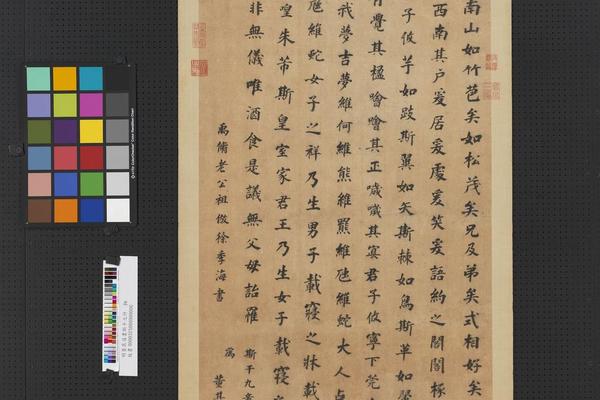 南山如竹苞矣如松茂矣兄及弟矣式相好矣
西南其戶爰居爰處爰笑爰語約之閣閣椓
子攸芋如跂斯翼如矢斯棘如鳥斯革如
有覺其楹噲噲其正噦噦其冥君子攸寧下莞
我夢吉夢維何維熊維羆維虺維蛇大人占
虺維蛇女子之祥乃生男子載寢之牀載
喤朱芾斯皇室家君王乃生女子載寢
非無儀唯酒食是議無父母詒罹
斯干九章
為
禹脩老公祖倣徐季海書
董其